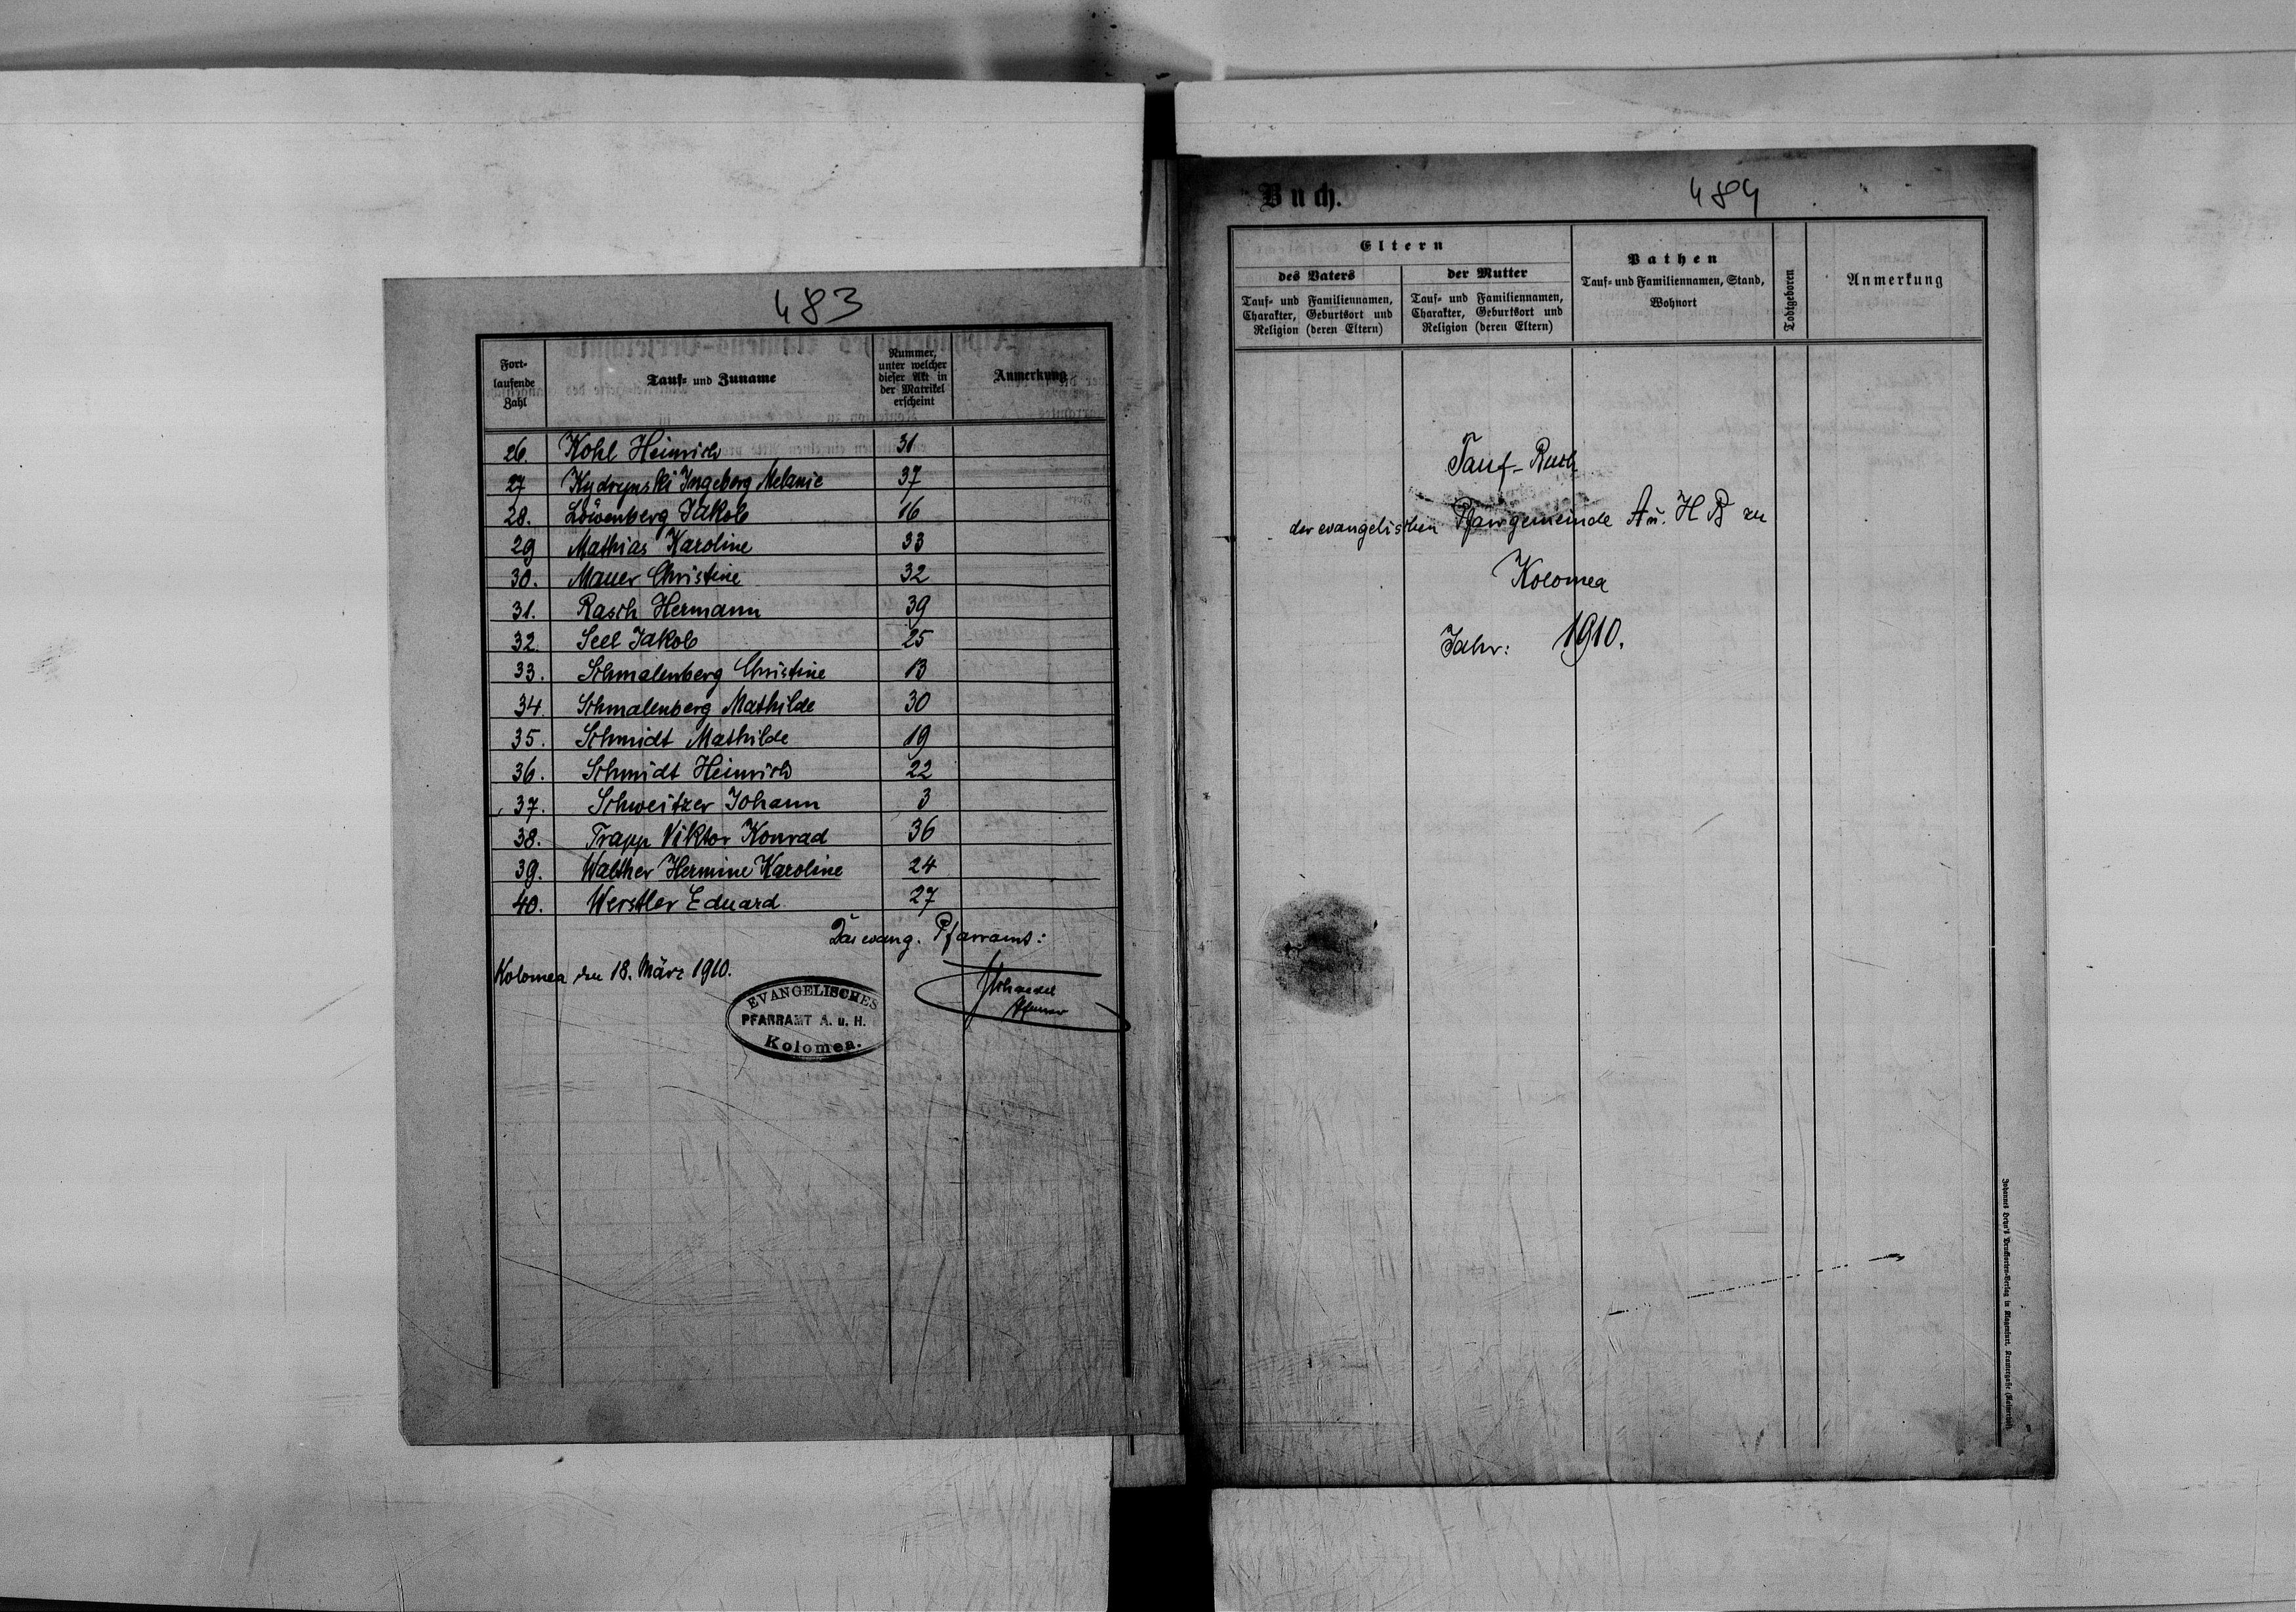 483
Fort-
laufende
Zahl
Tauf- und Zuname
Nummer,
unter welcher
dieser Akt in
der Matrikel
erscheint
Anmerkung
26. Kohl Heinrich 31
27 Kydrynski Ingeberg Melanie 37
28. Löwenberg Jakob 16
29 Mathias Karoline 33
30. Mauer Christine 32
31. Rasch Hermann 39
32. Seel Jakob 25
33. Schmalenberg Christine 13
34. Schmalenberg Mathilde 30
35. Schmidt Mathilde 19
36. Schmidt Heinrich 22
37. Schweitzer Johann 3
38. Trapp Viktor Konrad 36
39. Walther Hermine Karoline 24
40. Werstler Eduard 27
Das evang. Pfarramt:
Kolomea den 18. März 1910.
EVANGELISCHES
PFARRAMT A. u. H.
Kolomea.
Pfarrer
Buch.
484
Eltern
des Vaters
Tauf- und Familiennamen,
Charakter, Geburtsort und
Religion (deren Eltern)
der Mutter
Tauf- und Familiennamen,
Charakter, Geburtsort und
Religion (deren Eltern)
Pathen
Tauf- und Familiennamen, Stand,
Wohnort
Todtgeboren
Anmerkung
Tauf-Buch
der evangelischen Pfarrgemeinde A u. H B zu
Kolomea
Jahr: 1910.